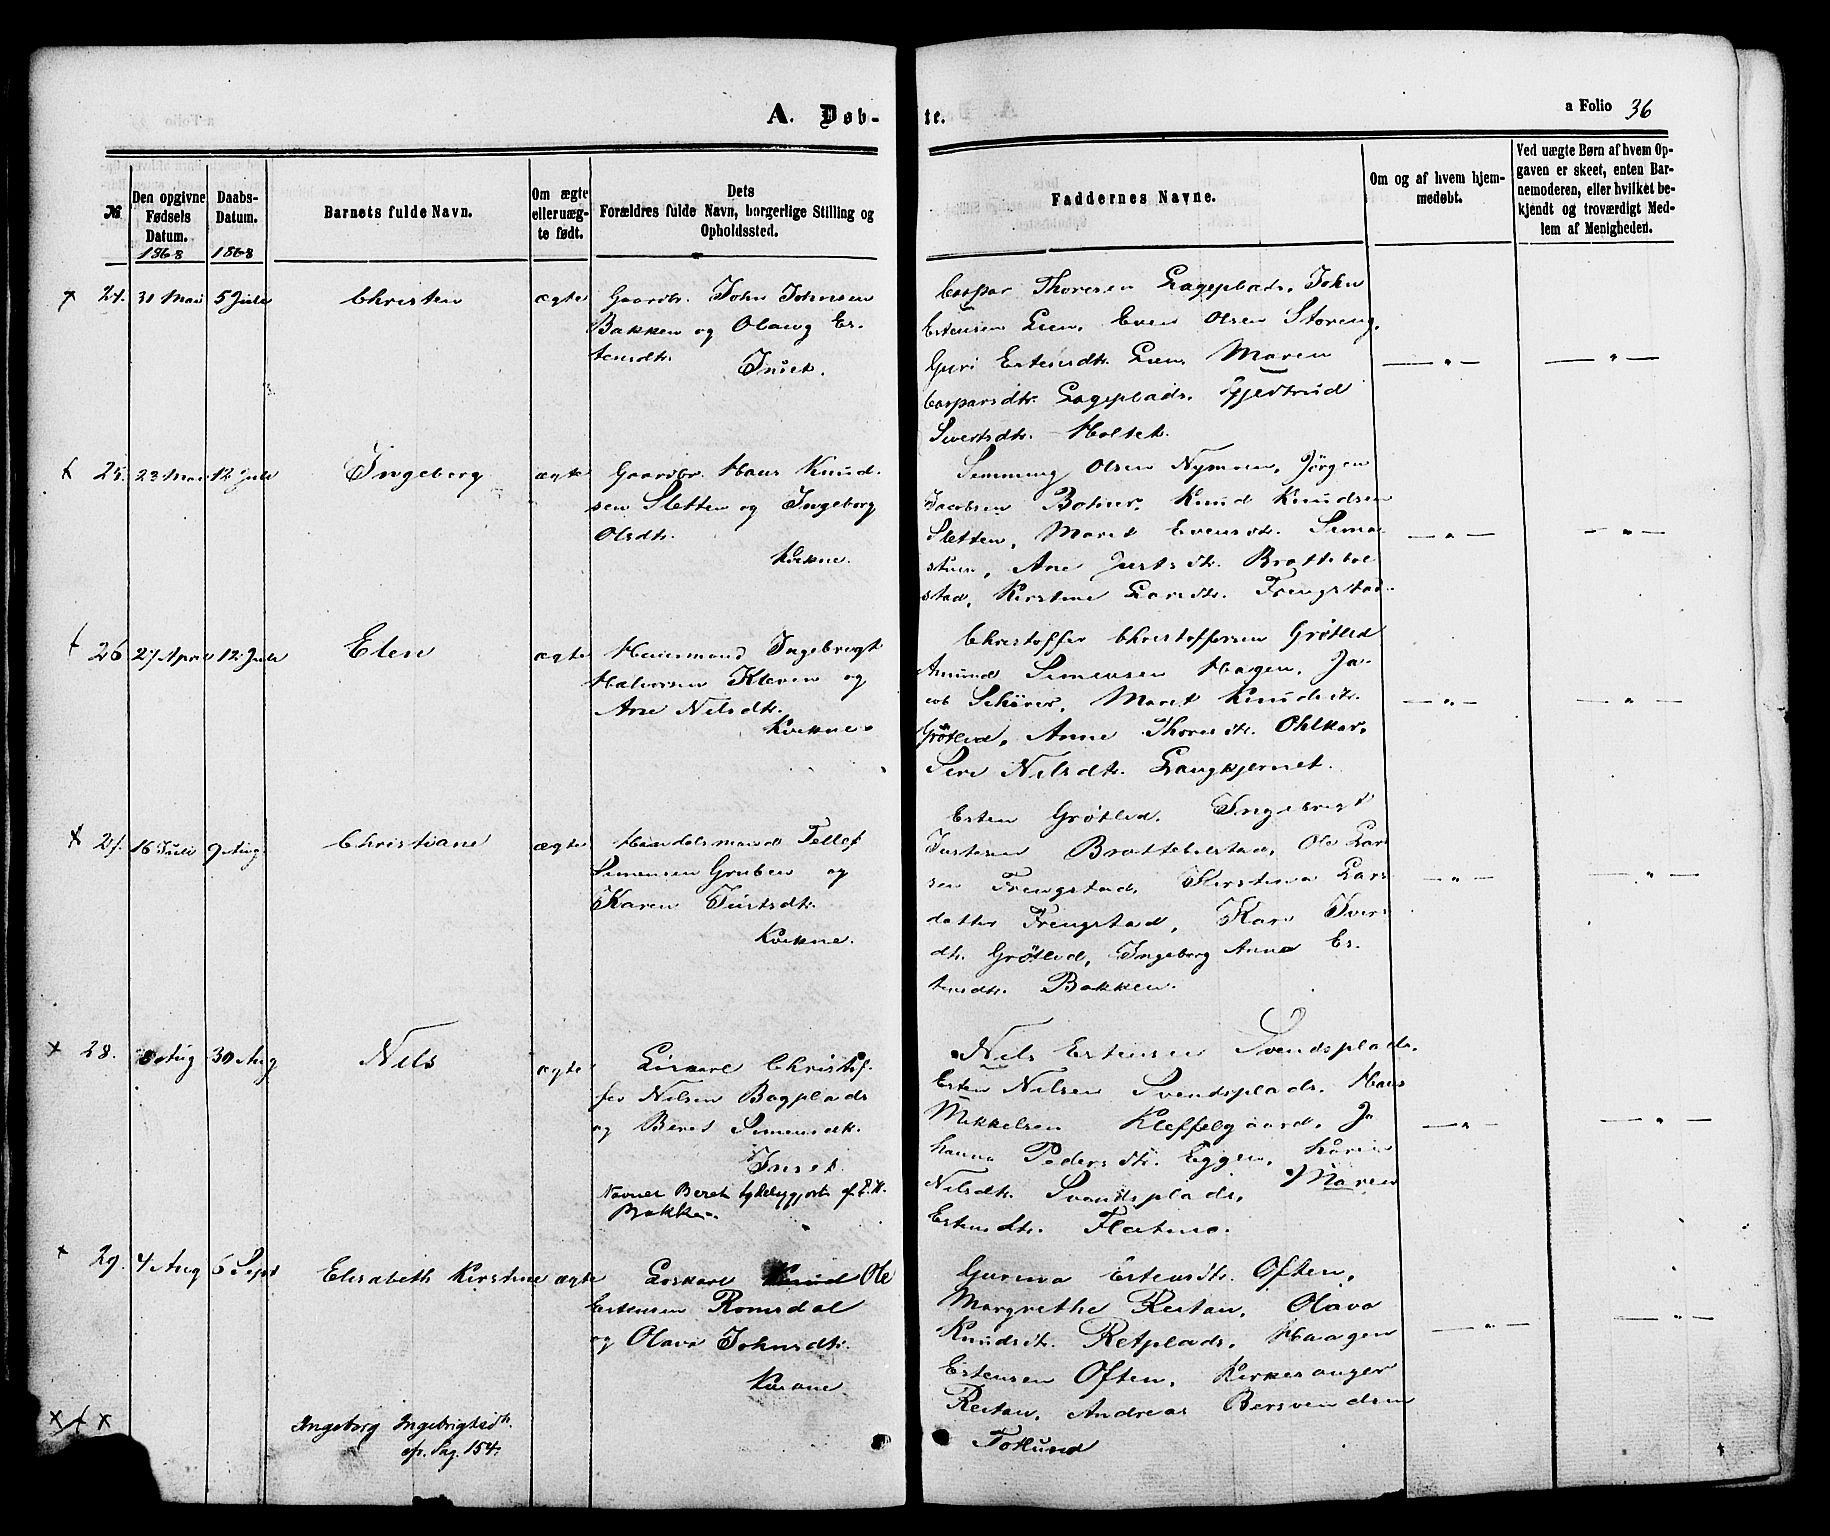 A. Døb-
te.
a Folio 36
№
Den opgivne Fødsels Datum.
1868
Daabs-Datum.
1868
Barnets fulde Navn.
Om ægte eller uæg-te født.
Dets
Forældres fulde Navn, borgerlige Stilling og Opholdssted.
Faddernes Navne.
Om og af hvem hjem-medøbt.
Ved uægte Børn af hvem Op-gaven er skeet, enten Bar-nemoderen, eller hvilket be-kjendt og troværdigt Med-lem af Menigheden.
x 24. 31 Mai 5 Juli Christen ægte
Gaardbr. John Johnsen
Bakken og Olaug Es-
tensdtr.
Inset.
Caspar Thoresen Lageplads, John
Estensen Lien, Even Olsen Storeng,
Guri Estensdtr. Lien, Maren
Casparsdtr. Lageplads, Gjertrud
Sivertsdtr. Holtet.
— " —
— " —
x 25. 23 Mai 12 Juli Ingeborg ægte
Gaardbr. Hans Knud-
sen Sletten og Ingeborg
Olsdtr.
Kvikne.
Simming Olsen Nymoen, Jørgen
Jacobsen Bohrer, Knud Knudsen
Sletten, Maret Evensdtr. Simo-
stuen, Ane Justsdtr. Brattebøl-
stad, Kirstine Larsdtr. Frengstad.
— " —
— " —
x 26 27 April 12 Juli Elen ægte
Huusmand Ingebrigt
Halvorsen Kleven og
Ane Nilsdtr.
Kvikne.
Christoffer Christoffersen Grøtlid
Amund Simensen Hagen, Ja-
cob Schärer, Maret Knudsdtr.
Grøtlid, Anne Thoresdtr. Ohlkar,
Siri Nilsdtr. Langkjernet.
— " —
— " —
x 27. 16 Juli 9 Aug. Christiane ægte
Handelsmand Tellef
Simensen Gruben og
Karen Justsdtr.
Kvikne.
Esten Grøtlid, Ingebrigt
Justesen Brattebølstad, Ole Lar-
sen Frengstad, Kirstina Lars-
datter Frengstad, Kari Ivers-
dtr. Grøtlid, Ingeborg Anna Es-
tensdtr. Bakken.
— " —
— " —
x 28. 8 Aug 30 Aug Nils ægte
Løskarl Christof-
fer Nilsen Bagplads
og Beret Simensdtr.
Inset.
Navnet Beret tydeliggjort af E.H.
Bakken.
Nils Estensen Svendsplads.
Esten Nilsen Svendsplads, Hans
Mikkelsen Kleffelgaard, Jo
hanna Pedersdtr. Eggen, Karen
Nilsdtr. Svendsplads, Maren
Estensdtr. Fløtmo.
— " —
— " —
x 29. 4 Aug 6 Sept Elisabeth Kirstine ægte
Løskarl Knud Ole
Estensen Romsdal
og Olava Johnsdtr.
Kvikne.
Gunina Estensdtr. Often,
Margrethe Restan, Olava
Knudsdtr. Retplads, Haagen
Estensen Often, Kirkesanger
Restan, Andreas Bersvendsen
Toklund
— " —
— " —
x x x
Ingeborg Ingebrigtsdtr.
cfr. Pag. 154.